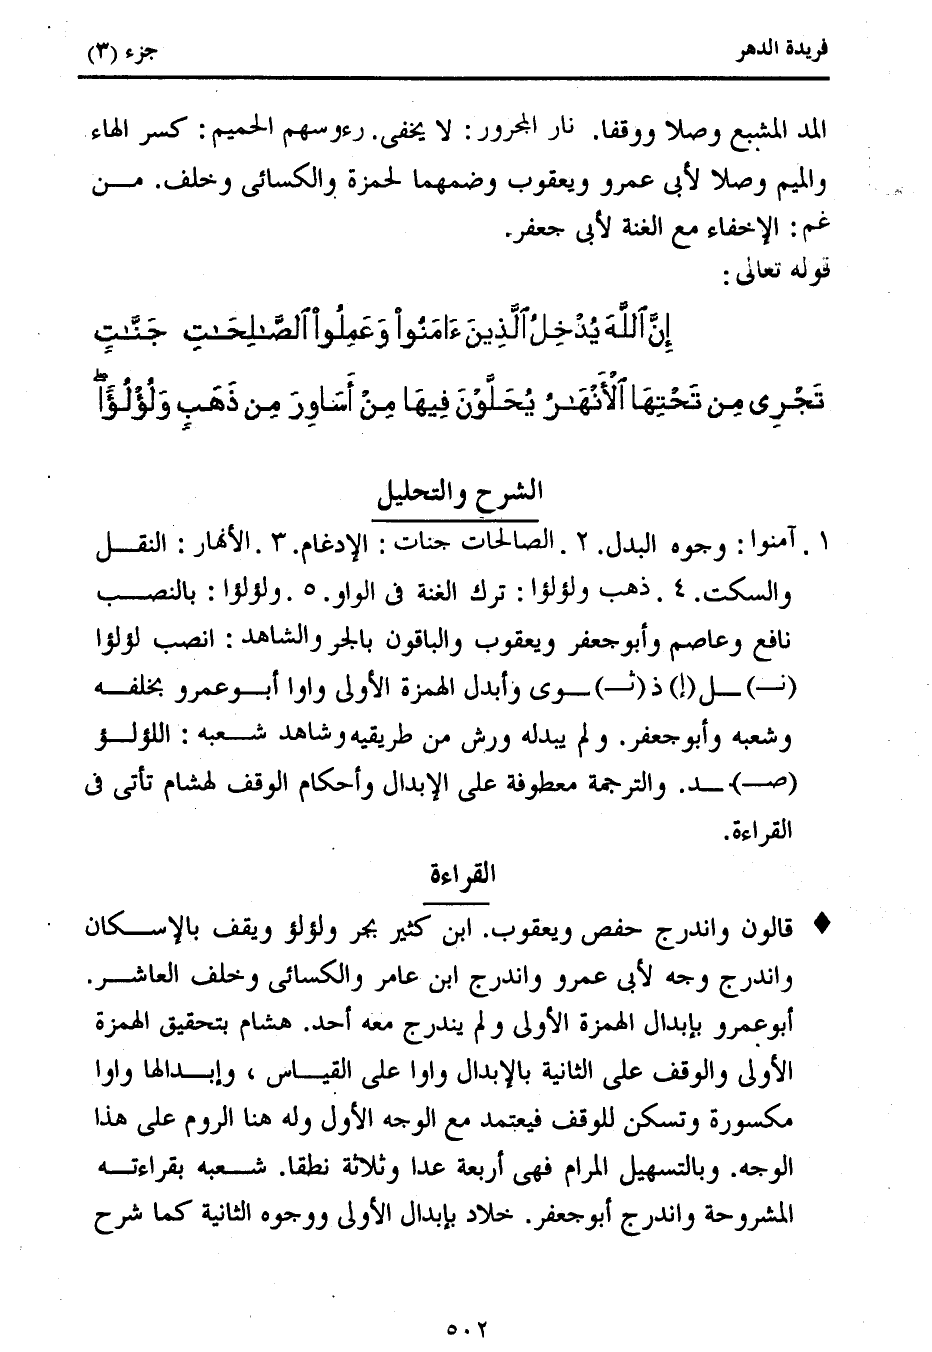 فريدة الدهر
جزء (٣)
المد المشبع وصلا ووقفا. نار المجرور: لا يخفى. رءوسهم الحميم: كسر الهاء
والميم وصلا لأبى عمرو ويعقوب وضمهما لحمزة والكسائى وخلف. مــن
غم: الإخفاء مع الغنة لأبى جعفر.
قوله تعالى:
إِنَّ ٱللَّهَ يُدْخِلُ ٱلَّذِينَ ءَامَنُواْ وَعَمِلُواْ ٱلصَّٰلِحَٰتِ جَنَّٰتٍ
تَجْرِى مِن تَحْتِهَا ٱلْأَنْهَٰرُ يُحَلَّوْنَ فِيهَا مِنْ أَسَاوِرَ مِن ذَهَبٍ وَلُؤْلُؤًاۖ
الشرح والتحليل
١. آمنوا: وجوه البدل. ٢. الصالحات جنات: الإدغام. ٣. الأنهار: النقــل
والسكت. ٤. ذهب ولؤلؤا: ترك الغنة فى الواو. ٥. ولؤلؤا: بالنصــب
نافع وعاصم وأبوجعفر ويعقوب والباقون بالجر والشاهد: انصب لؤلؤا
(نــ)ــل(إ) ذ (ثــ)ــوى وأبدل الهمزة الأولى واوا أبــوعمرو بخلفــه
وشعبه وأبوجعفر. ولم يبدله ورش من طريقيه وشاهد شــعبه: اللؤلــؤ
(صــ)ــد. والترجمة معطوفة على الإبدال وأحكام الوقف لهشام تأتى فى
القراءة.
القراءة
♦ قالون واندرج حفص ويعقوب. ابن كثير بجر ولؤلؤ ويقف بالإســكان
واندرج وجه لأبى عمرو واندرج ابن عامر والكسائى وخلف العاشــر.
أبوعمرو بإبدال الهمزة الأولى ولم يندرج معه أحد. هشام بتحقيق الهمزة
الأولى والوقف على الثانية بالإبدال واوا على القيــاس ، وإبــدالها واوا
مكسورة وتسكن للوقف فيعتمد مع الوجه الأول وله هنا الروم على هذا
الوجه. وبالتسهيل المرام فهى أربعة عدا وثلاثة نطقا. شــعبه بقراءتــه
المشروحة واندرج أبوجعفر. خلاد بإبدال الأولى ووجوه الثانية كما شرح
٥٠٢